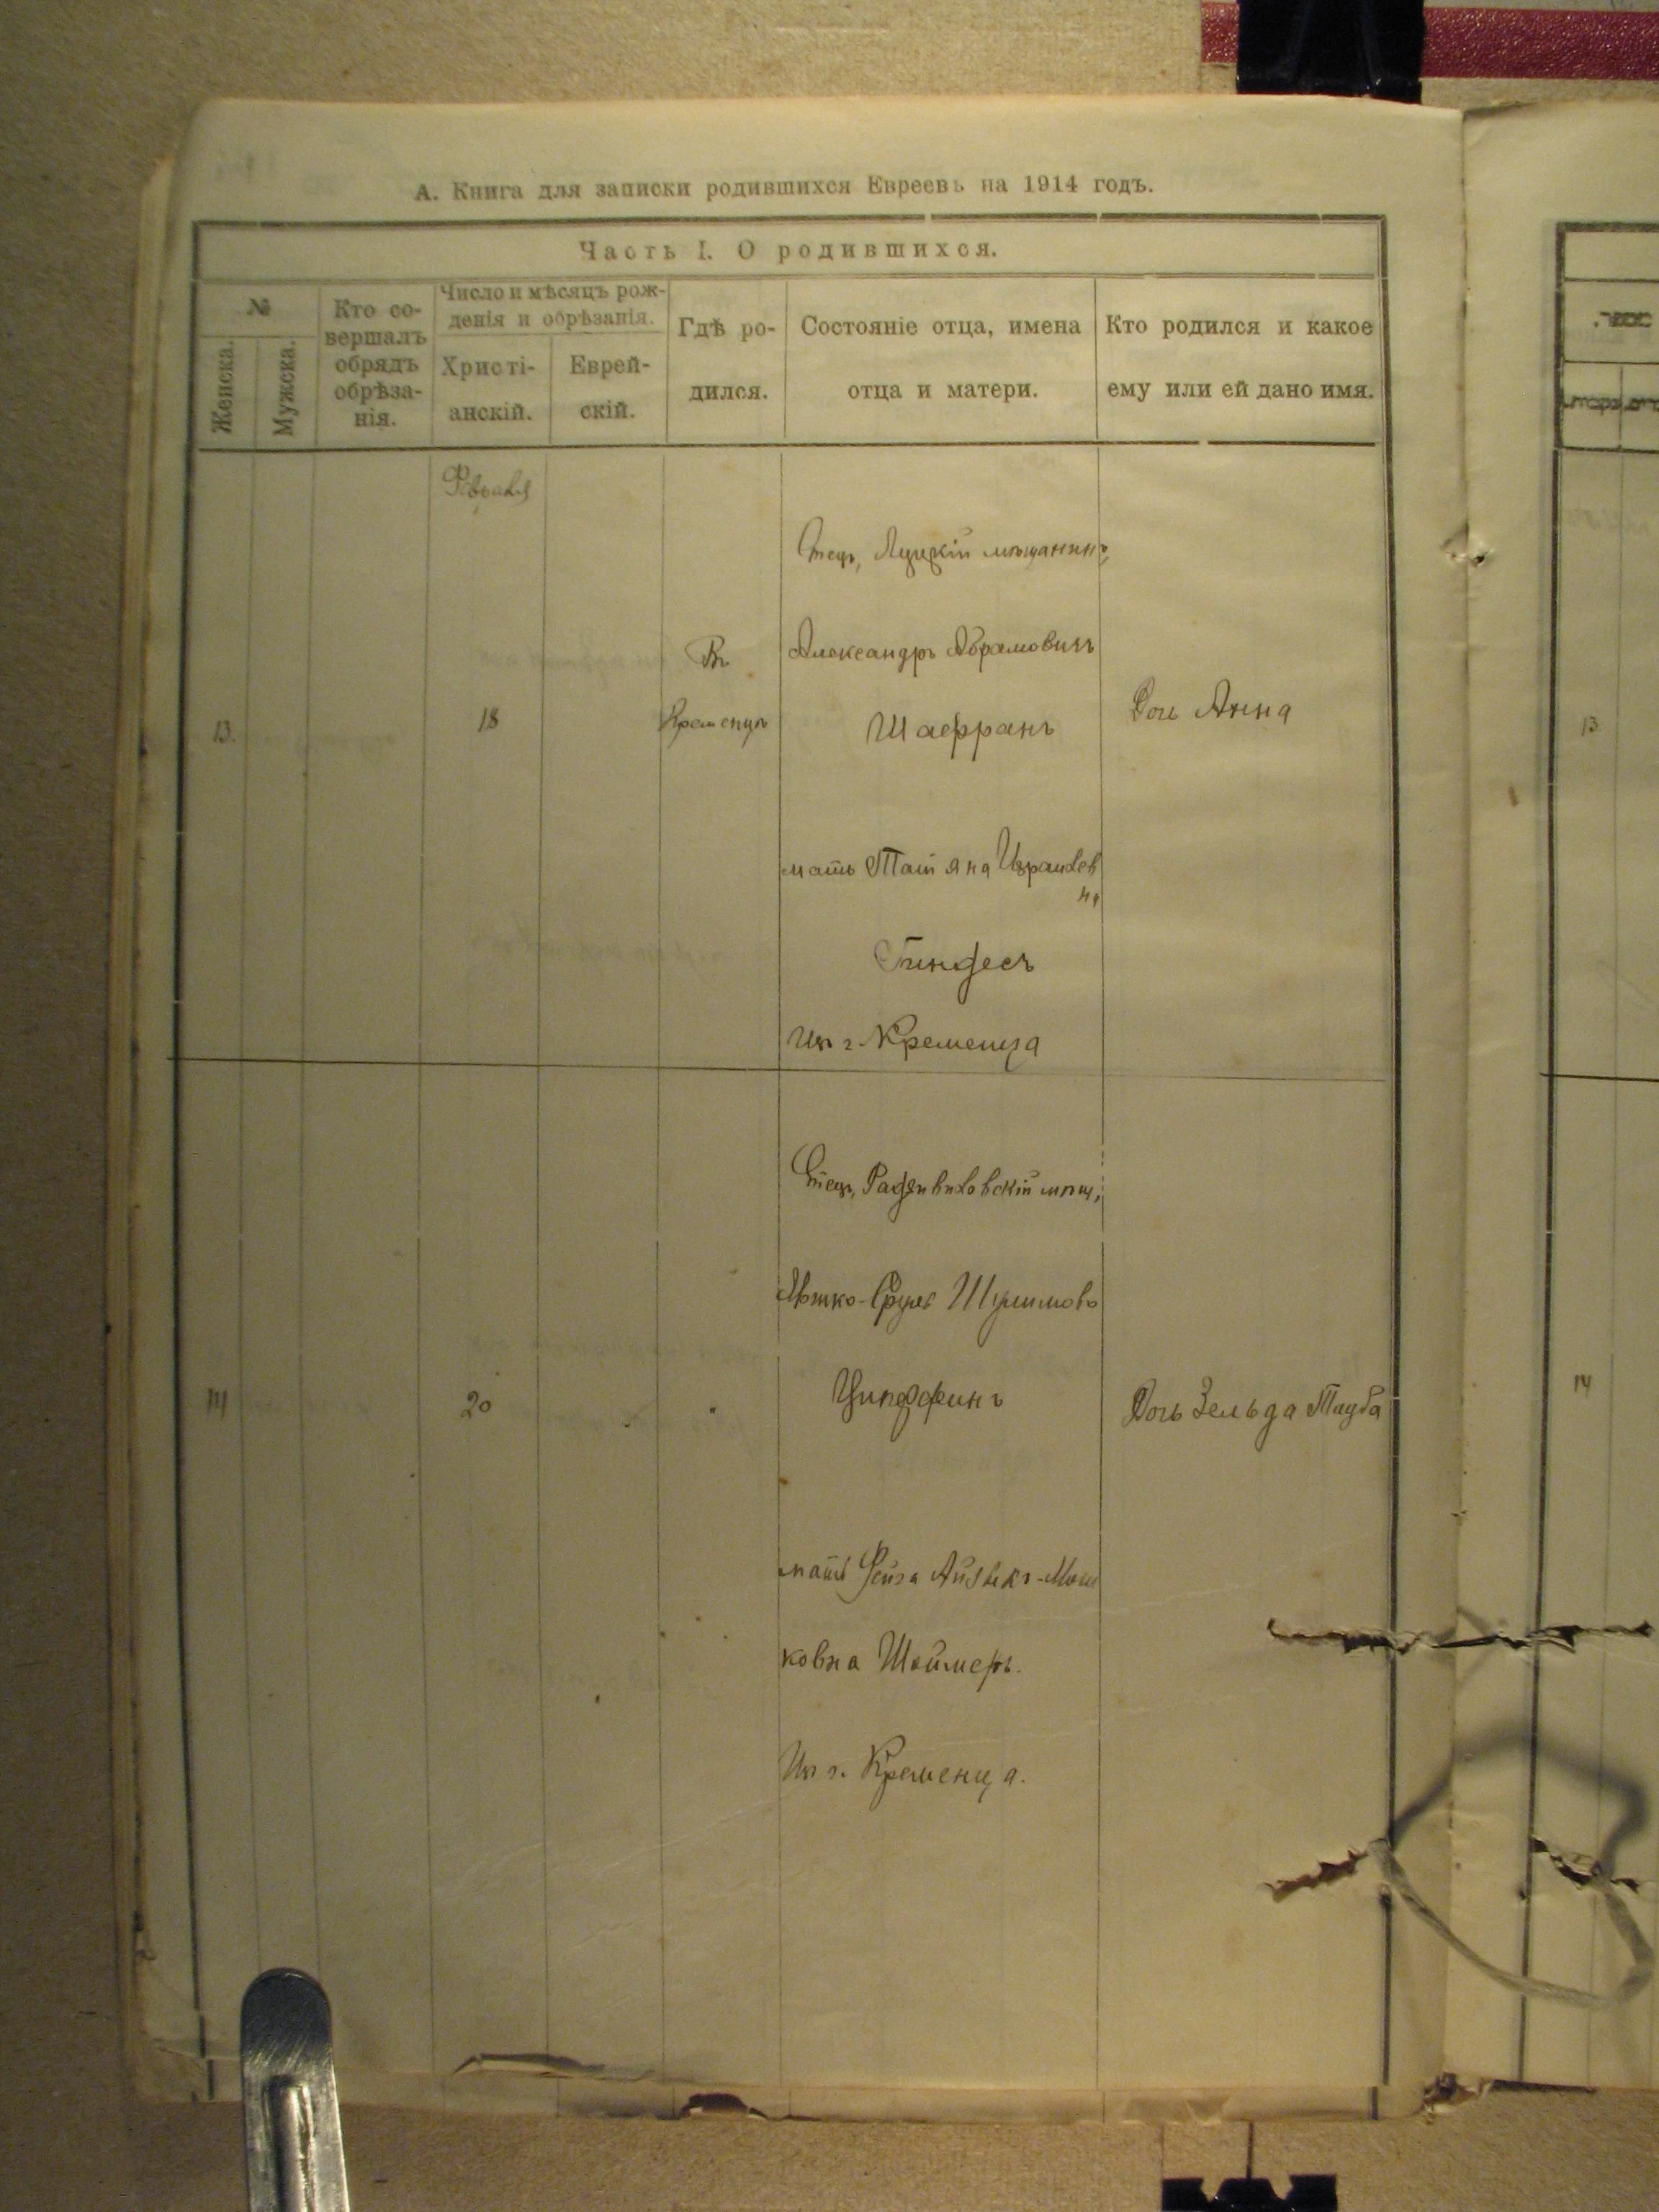 А. Книга для записки родившихся Евреевъ на 1914 годъ.
Часть I. О родившихся.
№
Женска.
Мужска.
Кто со-
вершалъ
обрядъ
обрѣза-
нія.
Число и мѣсяцъ рож-
денія и обрѣзанія.
Христі-
анскій.
Еврей-
скій.
Гдѣ ро-
дился.
Состояніе отца, имена
отца и матери.
Кто родился и какое
ему или ей дано имя.
Февраля
13.
18
Въ
Кременцѣ
Отецъ, Луцкій мѣщанинъ,
Александръ Абрамовичъ
Шафранъ
мать Татяна Израилев
на
Гиндесъ
Из г. Кременца
Дочь Анна
13
14
20
Отецъ, Радзивиловскій мѣщ,
Ицко-Сруль
Ципфинъ
мать Фейга Айзикъ-Мош
ковна Шоймеръ.
Из г. Кременца.
Дочь Зельда Тауба
14